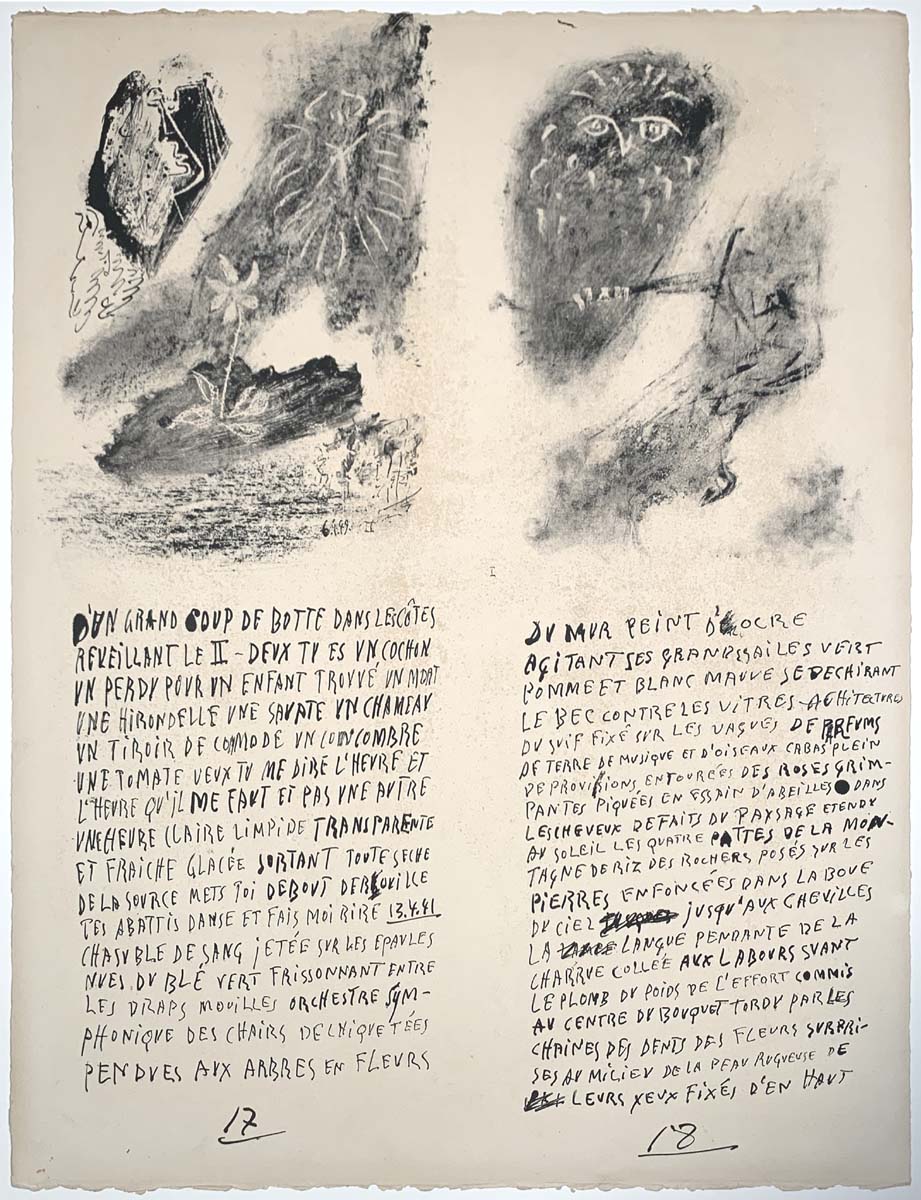 6.4.49. II
I
D'UN GRAND COUP DE BOTTE DANS LES CÔTES
REVEILLANT LE II - DEUX TU ES UN COCHON
UN PERDU POUR UN ENFANT TROUVÉ UN MORT
UNE HIRONDELLE UNE SAVATE UN CHAMEAU
UN TIROIR DE COMMODE UN CONCOMBRE
UNE TOMATE VEUX TU ME DIRE L'HEURE ET
L'HEURE QU'IL ME FAUT ET PAS UNE AUTRE
UNE HEURE CLAIRE LIMPIDE TRANSPARENTE
ET FRAICHE GLACÉE SORTANT TOUTE SECHE
DE LA SOURCE METS TOI DEBOUT DEROUILLE
TES ABATTIS DANSE ET FAIS MOI RIRE 13.4.41
CHASUBLE DE SANG JETÉE SUR LES EPAULES
NUES DU BLÉ VERT FRISSONNANT ENTRE
LES DRAPS MOUILLES ORCHESTRE SYM-
PHONIQUE DES CHAIRS DECHIQUETÉES
PENDUES AUX ARBRES EN FLEURS
17
DU MUR PEINT D'OCRE
AGITANT SES GRANDES AILES VERT
POMME ET BLANC MAUVE SE DECHIRANT
LE BEC CONTRE LES VITRES ACHITECTURES
DU SUIF FIXÉ SUR LES VAGUES DE PARFUMS
DE TERRE DE MUSIQUE ET D'OISEAUX CABAS PLEIN
DE PROVISIONS ENTOURÉES DES ROSES GRIM-
PANTES PIQUÉES EN ESSAIN D'ABEILLES DANS
LES CHEVEUX DEFAITS DU PAYSAGE ETENDU
AU SOLEIL LES QUATRE PATTES DE LA MON-
TAGNE DE RIZ DES ROCHERS POSÉS SUR LES
PIERRES ENFONCÉES DANS LA BOUE
DU CIEL JUSQU'AUX CHEVILLES
LA LANGUE PENDANTE DE LA
CHARRUE COLLÉE AUX LABOURS SUANT
LE PLOMB DU POIDS DE L'EFFORT COMMIS
AU CENTRE DU BOUQUET TORDU PAR LES
CHAINES DES DENTS DES FLEURS SURPRI-
SES AU MILIEU DE LA PEAU RUGUEUSE DE
LEURS YEUX FIXÉS D'EN HAUT
18